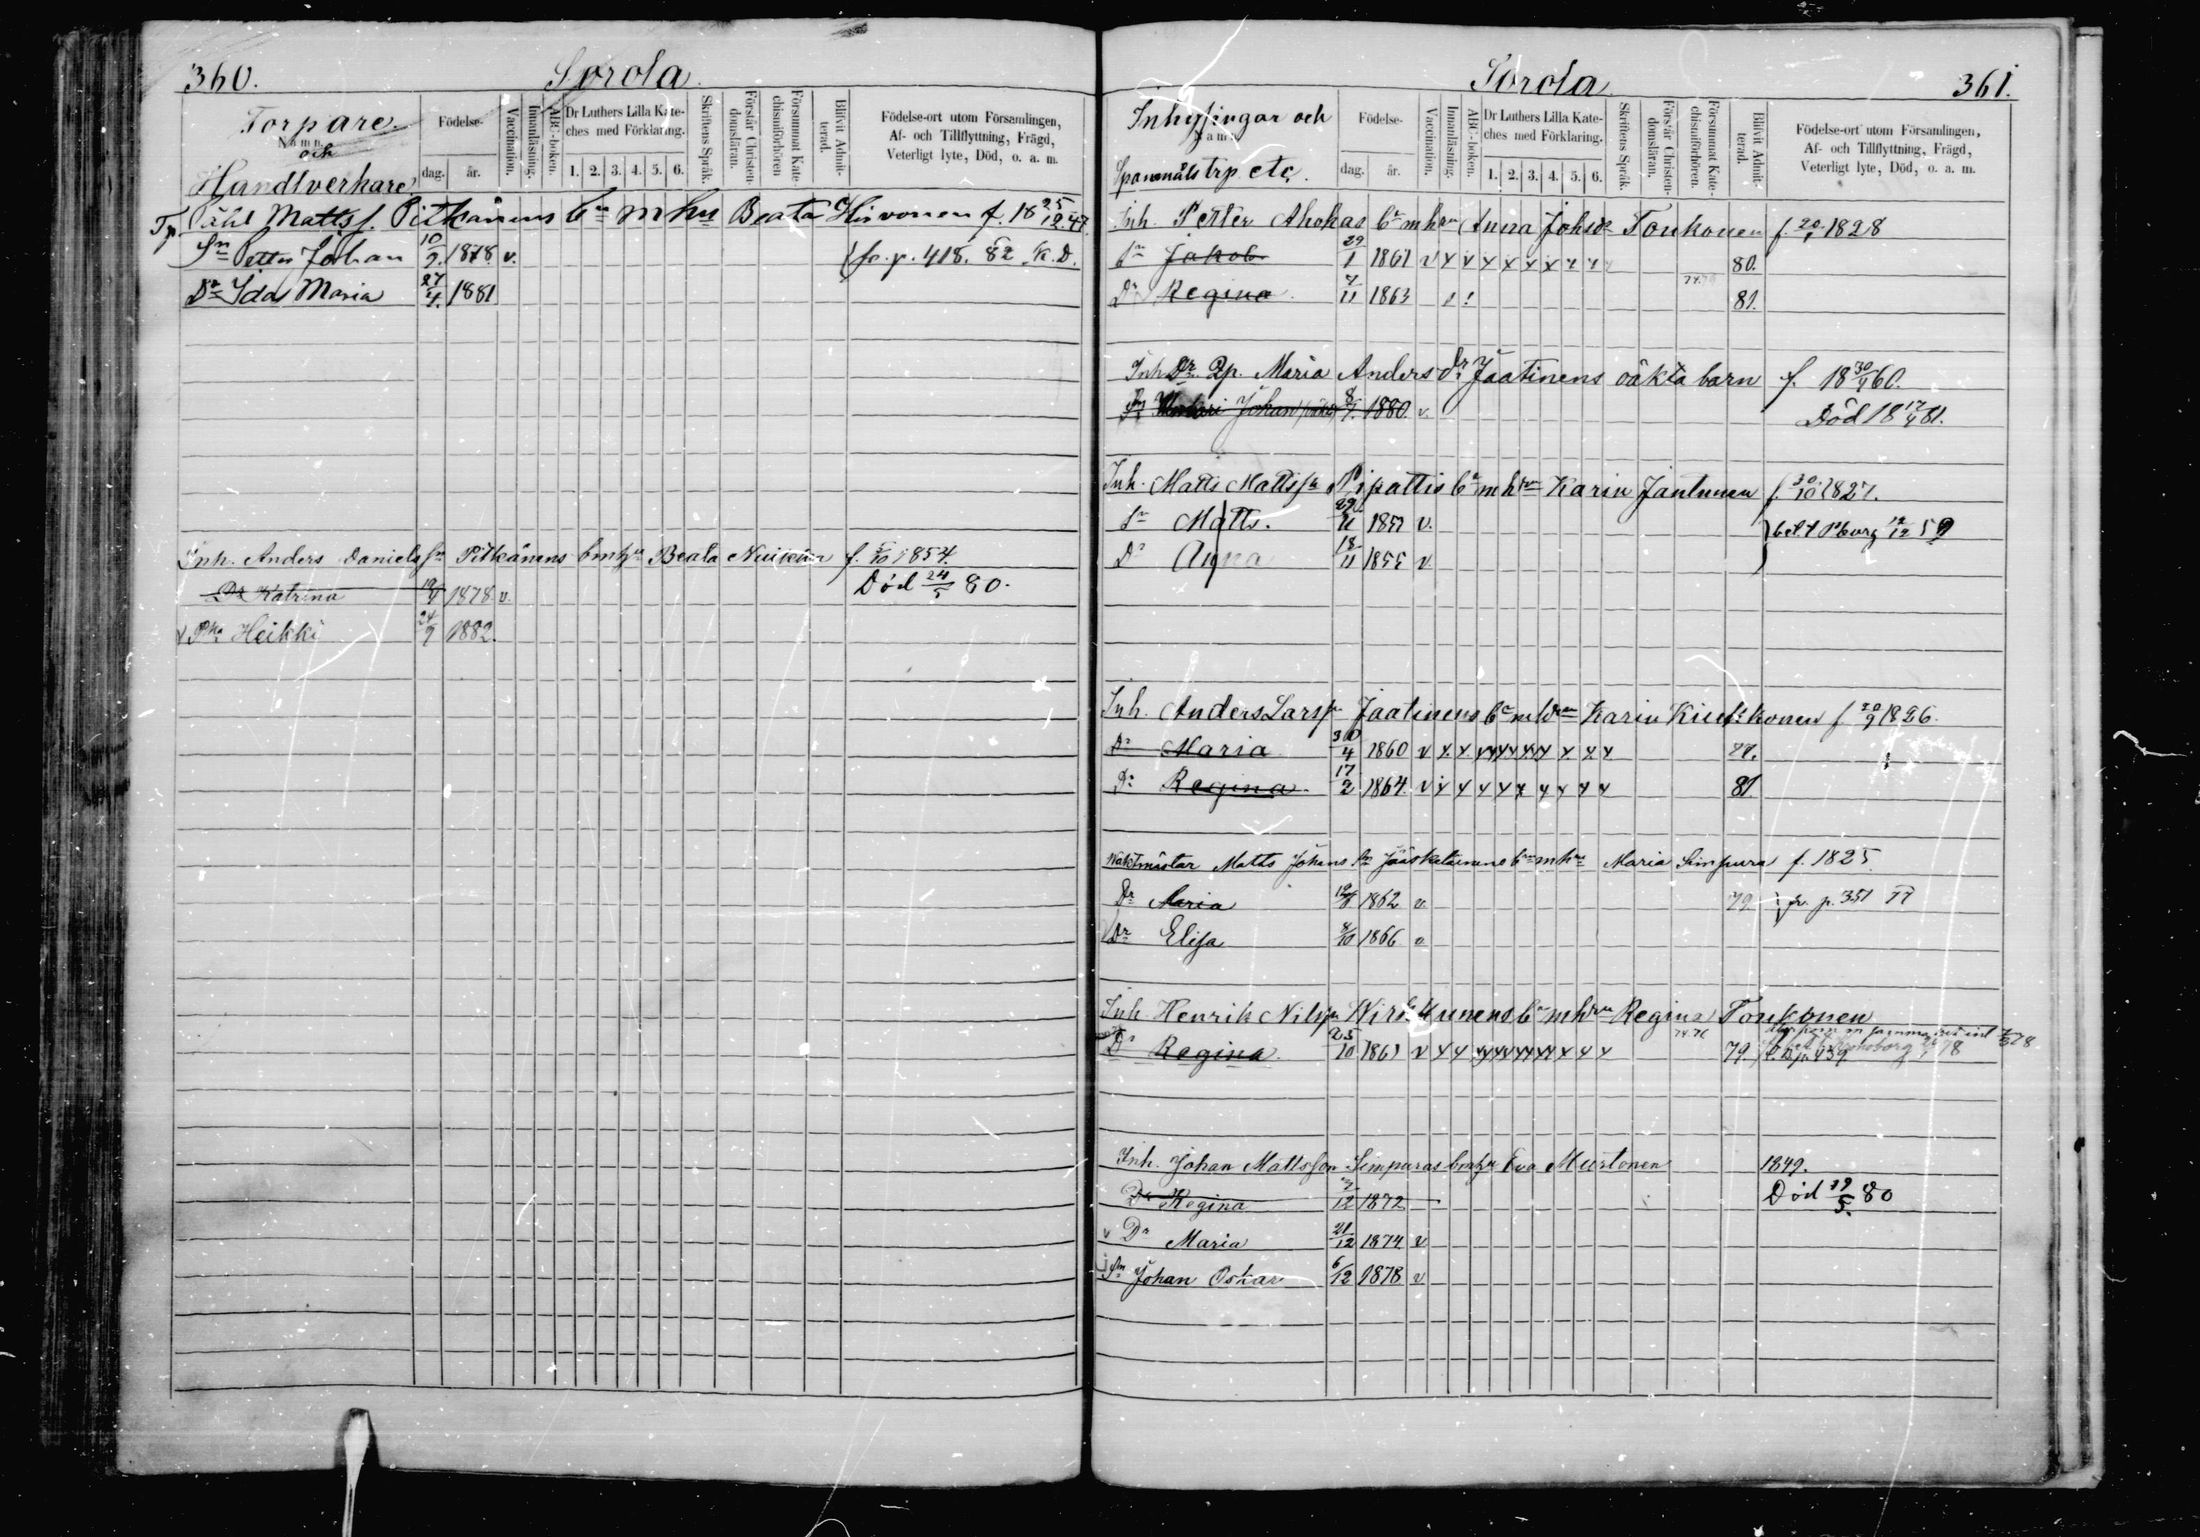 360.
Sorola
Torpare
Namn.
och
Handtverkare
Födelse-
dag.
år.
Vaccination.
Innanläsning.
ABC-boken.
Dr Luthers Lilla Kate-
ches med Förklaring.
1. 2. 3. 4. 5. 6.
Skriftens Språk.
Förstår Christen-
domsläran.
Försummat Kate-
chismiförhören
Blifvit Admit-
terad.
Födelse-ort utom Församlingen,
Af- och Tillflyttning, Frägd,
Veterligt lyte, Död, o. a. m.
Tp Påhl Mattss. Pitkänens bn m hu Beata Hirvonen f. 18 25/12 47.
Sn Petter Johan 10/9. 1878. v. fr. p. 418. 82 K. D.
Dr Ida Maria 27/4. 1881
Inh. Anders Daniels sn Pitkänens bn m hu Beata f. 5/10 1854.
Dr Katrina 19/4 1878. v. Död 24/5 80.
Heikki 24/9 1882.
Sorola
361.
Inhysingar och
Namn
Spannmåls trp. etc.
Födelse-
dag.
år.
Vaccination.
Innanläsning.
ABC-boken.
Dr Luthers Lilla Kate-
ches med Förklaring.
1. 2. 3. 4. 5. 6.
Skriftens Språk.
Förstår Christen-
domsläran.
Försummat Kate-
chismiförhören.
Blifvit Admit-
terad.
Födelse-ort utom Församlingen,
Af- och Tillflyttning, Frägd,
Veterligt lyte, Död, o. a. m.
Inh. Petter Ahokas bn m hu Anna Johsdr Toukonen f. 20/1 1828
Sn Jakob 29/1 1861 v x x x x x x x x 80.
Dr Regina 7/11 1863 81.
Inh Dr Qp. Maria Anders dr Jaatinens oäkta barn f. 18 30/4 60.
Johan 8/7. 1880. v. Död 18 17/4 81.
Inh. Matts Mattssn Pipattis bn m hu Karin Jantunen f. 30/10 1827.
Sn Matts. 29/11 1851 v. bet. t Pburg 12/12 59
Dr Anna 18/11 1855 v
Inh. Anders Larssn Jaatinens bn m hu Karin f 20/9 1826.
Dr Maria 30/4 1860 v x x x x x x x x x x 77.
Dr Regina 17/2 1864. v x x x x x x x x x 81.
Waktmästar Matts Johans sn Jääskeläinens bn m hu Maria Simpura f. 1825
Dr Maria 1862 v. 79 fr. p. 351 77
Dr Elisa 4/10 1866 v.
Inh Henrik Nilssn Wirkkunens bn m hu Regina Toukonen
Dr Regina 25/10 1861 v x x x x x x x x x x 74.76 79.
Inh. Johan Mattsson Simpuras bn m hu Eva Mustonen 1849.
Dr Regina 7/12 1872 Död 29/5. 80
v Dr Maria 21/12 1874 v
Sn Johan Oskar 6/12 1878 v